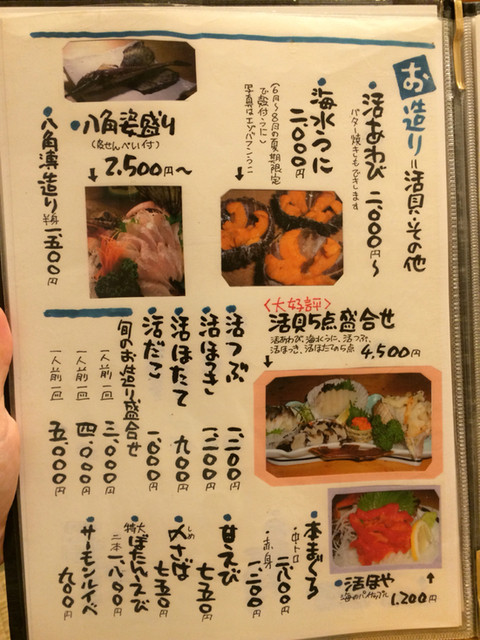 お造り＝活貝・その他
・活あわび 二、〇〇〇円〜
バター焼きもできます
・海水うに 二、〇〇〇円
(6月〜8月の夏期限定
で殻付うに)
写真はエゾバフンウニ
・八角姿盛り
(骨せんべい付)
↓2.500円〜
・八角薄造り 半身 一、五〇〇円
<大好評>
活貝5点盛合せ
活あわび、海水うに、活つぶ、
活ほっき、活ほたての5点
4,500円
・活つぶ 一、二〇〇円
・活ほっき 一、二〇〇円
・活ほたて 九〇〇円
・活だこ 一、〇〇〇円
旬のお造り盛合せ
一人前一皿 三、〇〇〇円
一人前一皿 四、〇〇〇円
一人前一皿 五、〇〇〇円
・活ほや
海のパイナップル
1.200円
・本まぐろ
・中トロ 二、八〇〇円
・赤身 一、二〇〇円
・甘えび 七五〇円
・〆さば 七五〇円
しめ
・特大ぼたんえび
二本 一、八〇〇円
・サーモンルイベ 九〇〇円